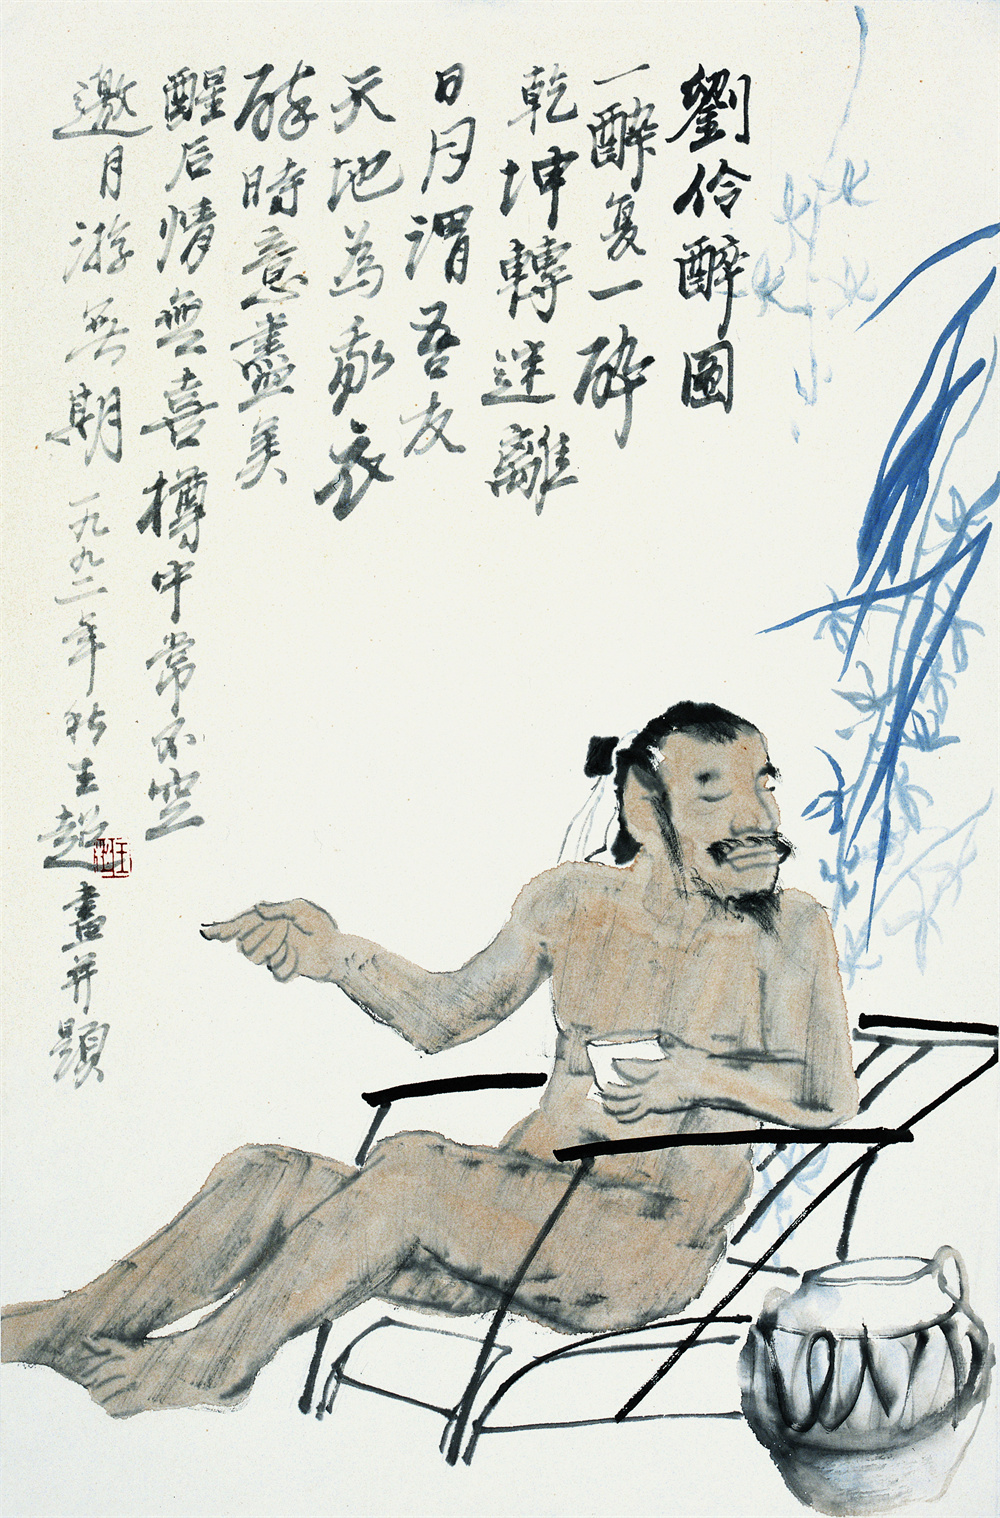 劉伶醉圖
一醉复一酔
乾坤轉迷離
日月謂吾友
天地為我衣
醉時意盡美
醒后情無喜樽中常不空
邀月游無期 一九九二年秋王超畫并題